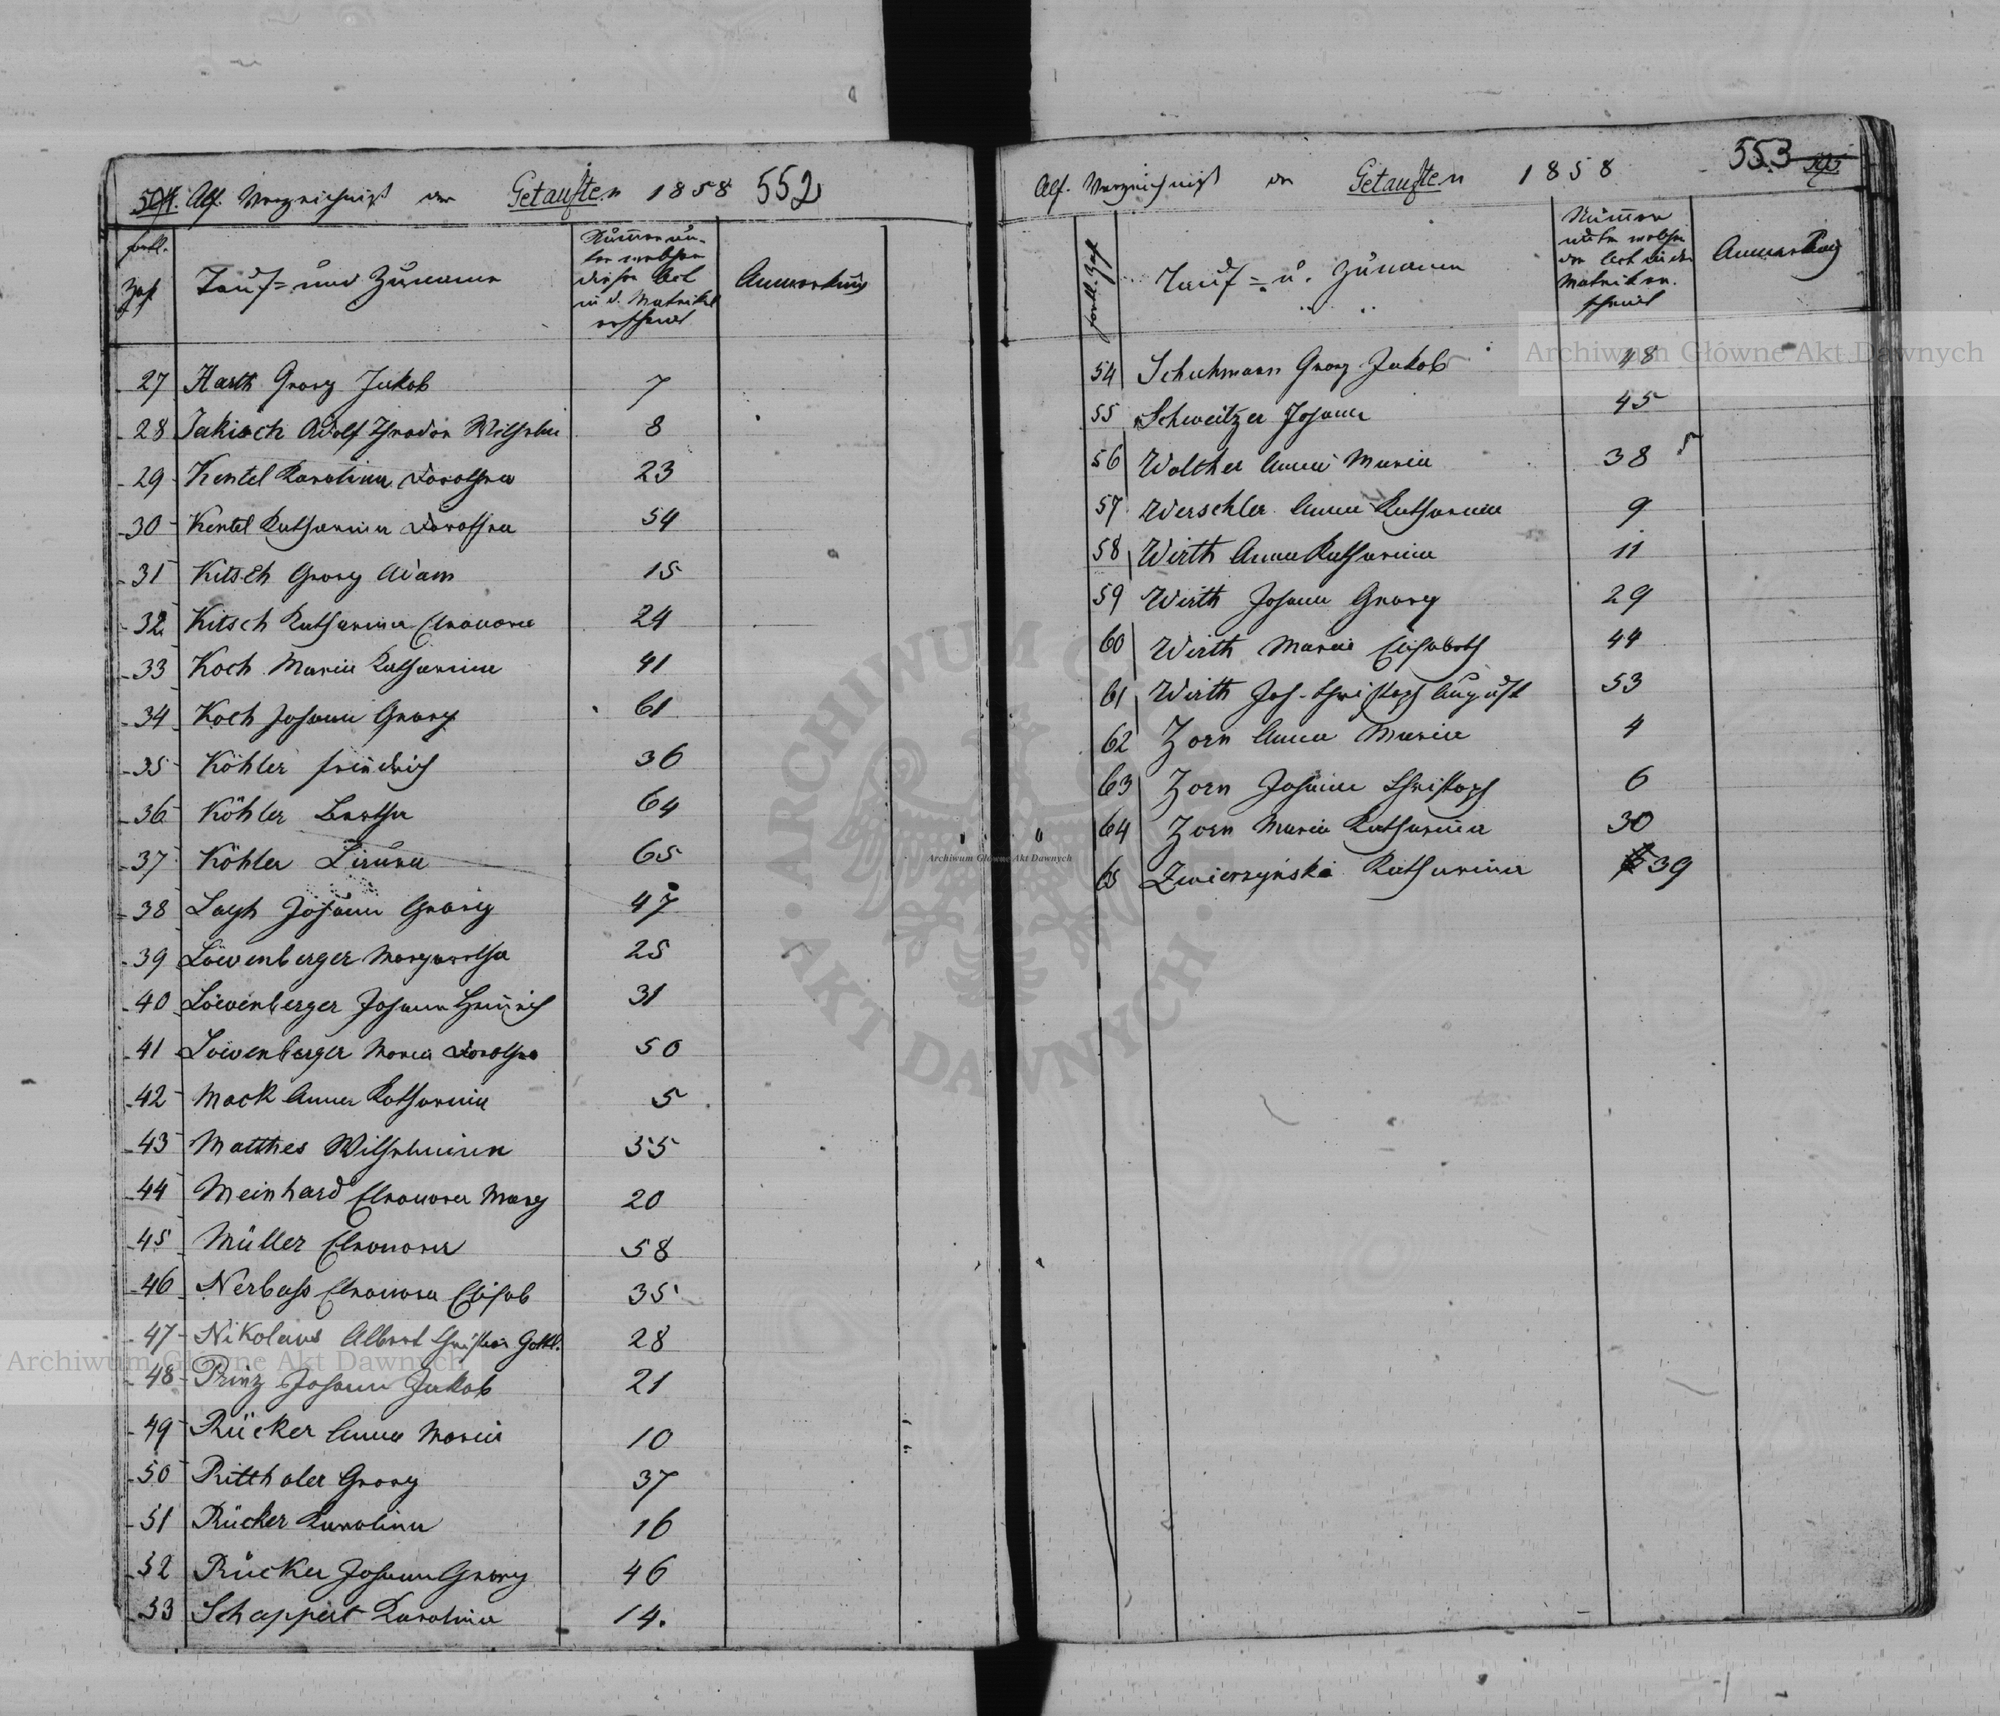 504. Alf. Verzeichniß der Getauften 1858 552
fortl. Zahl
Tauf= und Zuname
Nummer un-
ter welcher
dieser Act
in d. Matrikel
erscheint
Anmerkung
27 Harth Georg Jakob 7
28 Jakisch Adolf Theodor Wilhelm 8
29 Kentel Karolina Dorothea 23
30 Kentel Katharina Dorothea 54
31 Kitsch Georg Adam 15
32 Kitsch Katharina Eleonora 24
33 Koch Maria Katharina 41
34 Koch Johann Georg 61
35 Köhler Friedrich 36
36 Köhler Bertha 64
37 Köhler Laura 65
38 Layh Johann Georg 47
39 Löwenberger Margaretha 25
40 Löwenberger Johann Heinrich 31
41 Löwenberger Maria Dorothea 50
42 Mack Anna Katharina 5
43 Matthes Wilhelmine 55
44 Meinhard Eleonora Marg 20
45 Müller Eleonora 58
46 Nerbass Eleonora Elisab 35
47 Nikolaus Albert Christian Gottl. 28
48 Prinz Johann Jakob 21
49 Rücker Anna Maria 10
50 Ritthaler Georg 37
51 Rücker Karolina 16
52 Rücker Johann Georg 46
53 Schappert Karolina 14.
Alf. Verzeichniß der Getauften 1858 553
fortl. Zahl
Tauf= u. Zuname
Nummer
unter welcher
der Act in der
Matrikel er-
scheint
Anmerkung
54 Schuhmann Georg Jakob 48
55 Schweitzer Johann 45
56 Walther Anna Maria 38
57 Werschler Anna Katharina 9
58 Wirth Anna Katharina 11
59 Wirth Johann Georg 29
60 Wirth Maria Elisabeth 44
61 Wirth Joh. Christoph August 53
62 Zorn Anna Maria 4
63 Zorn Johann Christoph 6
64 Zorn Maria Katharina 30
65 Zwierzyńska Katharina 39
Archiwum Główne Akt Dawnych
ARCHIWUM GŁÓWNE AKT DAWNYCH
Archiwum Główne Akt Dawnych
Archiwum Główne Akt Dawnych